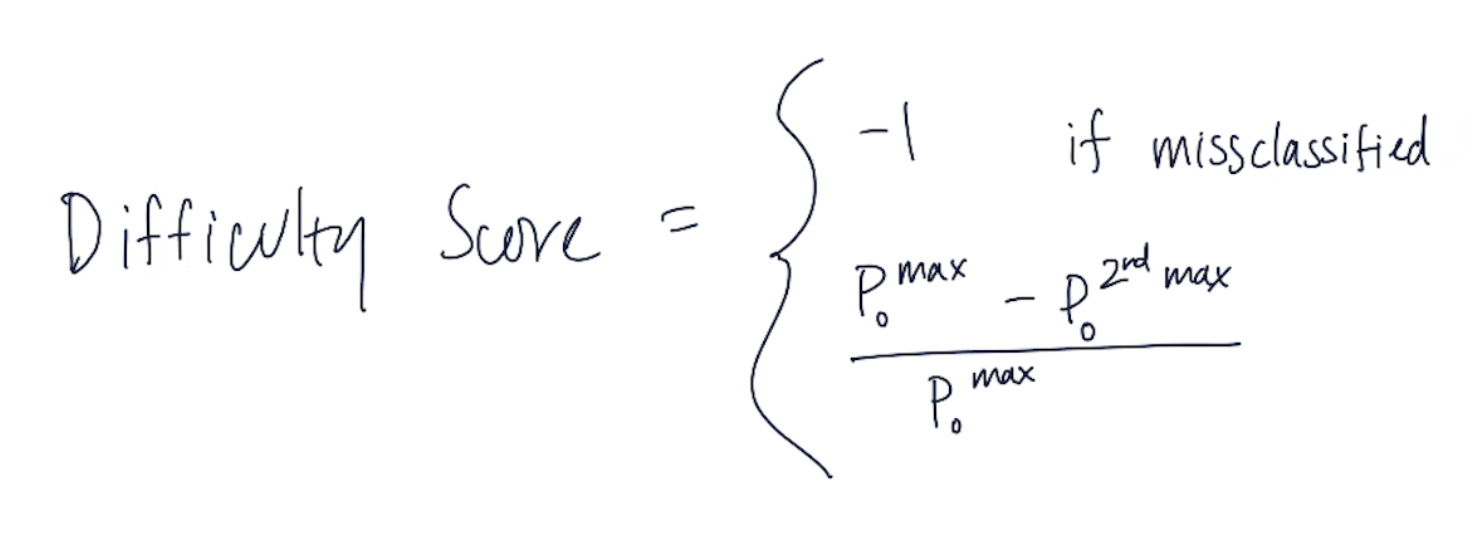 Difficulty Score =
-1 if missclassified
P₀^max - P₀^2nd max
P₀^max